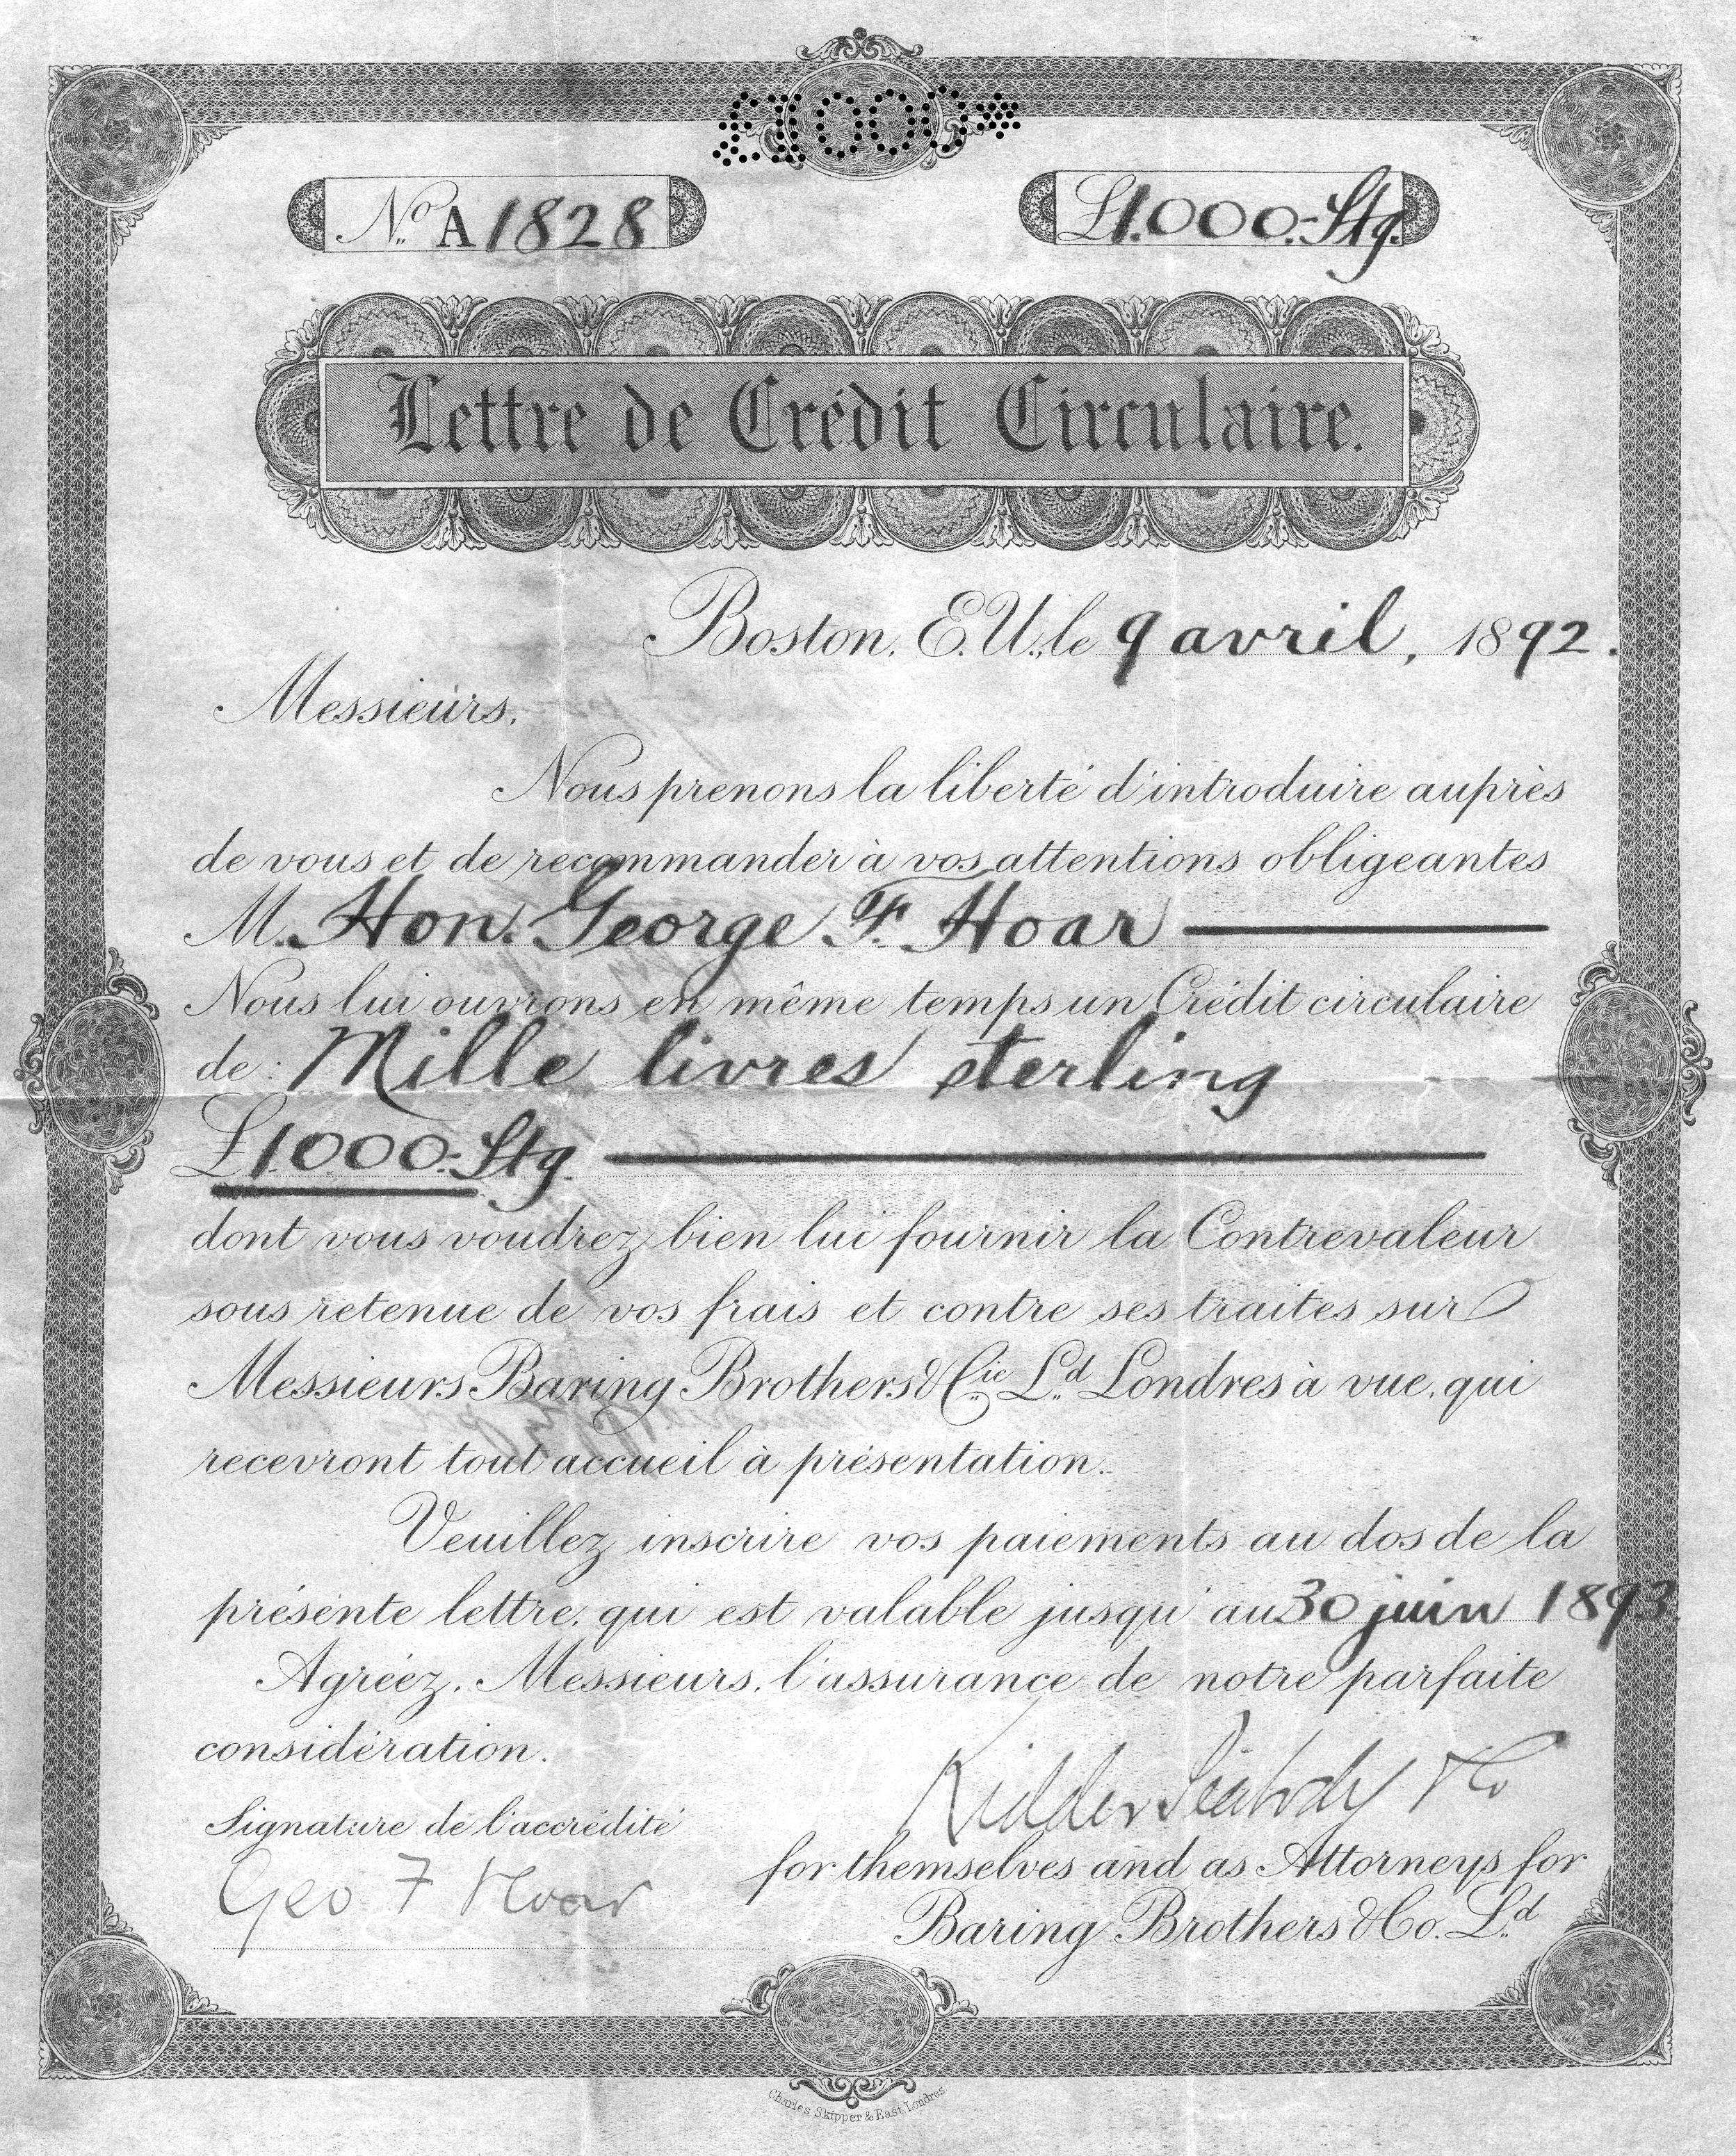 £1000*
No. A 1828
£1.000.- Stg.
Lettre de Crédit Circulaire.
Boston, E.U., le 9 avril, 1892.
Messieurs,
Nous prenons la liberté d'introduire auprès
de vous et de recommander à vos attentions obligeantes
M. Hon. George F. Hoar
Nous lui ouvrons en même temps un Crédit circulaire
de: Mille livres sterling
£1.000.- Stg.
dont vous voudrez bien lui fournir la Contrevaleur
sous retenue de vos frais et contre ses traites sur
Messieurs Baring Brothers & Cie Ld Londres à vue, qui
recevront tout accueil à présentation.
Veuillez inscrire vos paiements au dos de la
présente lettre, qui est valable jusqu'au 30 juin 1893.
Agréez, Messieurs, l'assurance de notre parfaite
considération.
Kidder Peabody & Co
Signature de l'accrédité
for themselves and as Attorneys for
Geo F Hoar
Baring Brothers & Co. Ld
Charles Skipper & East Londres